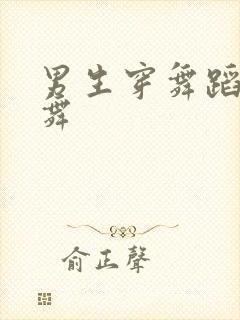 男生穿舞蹈
舞
俞正聲